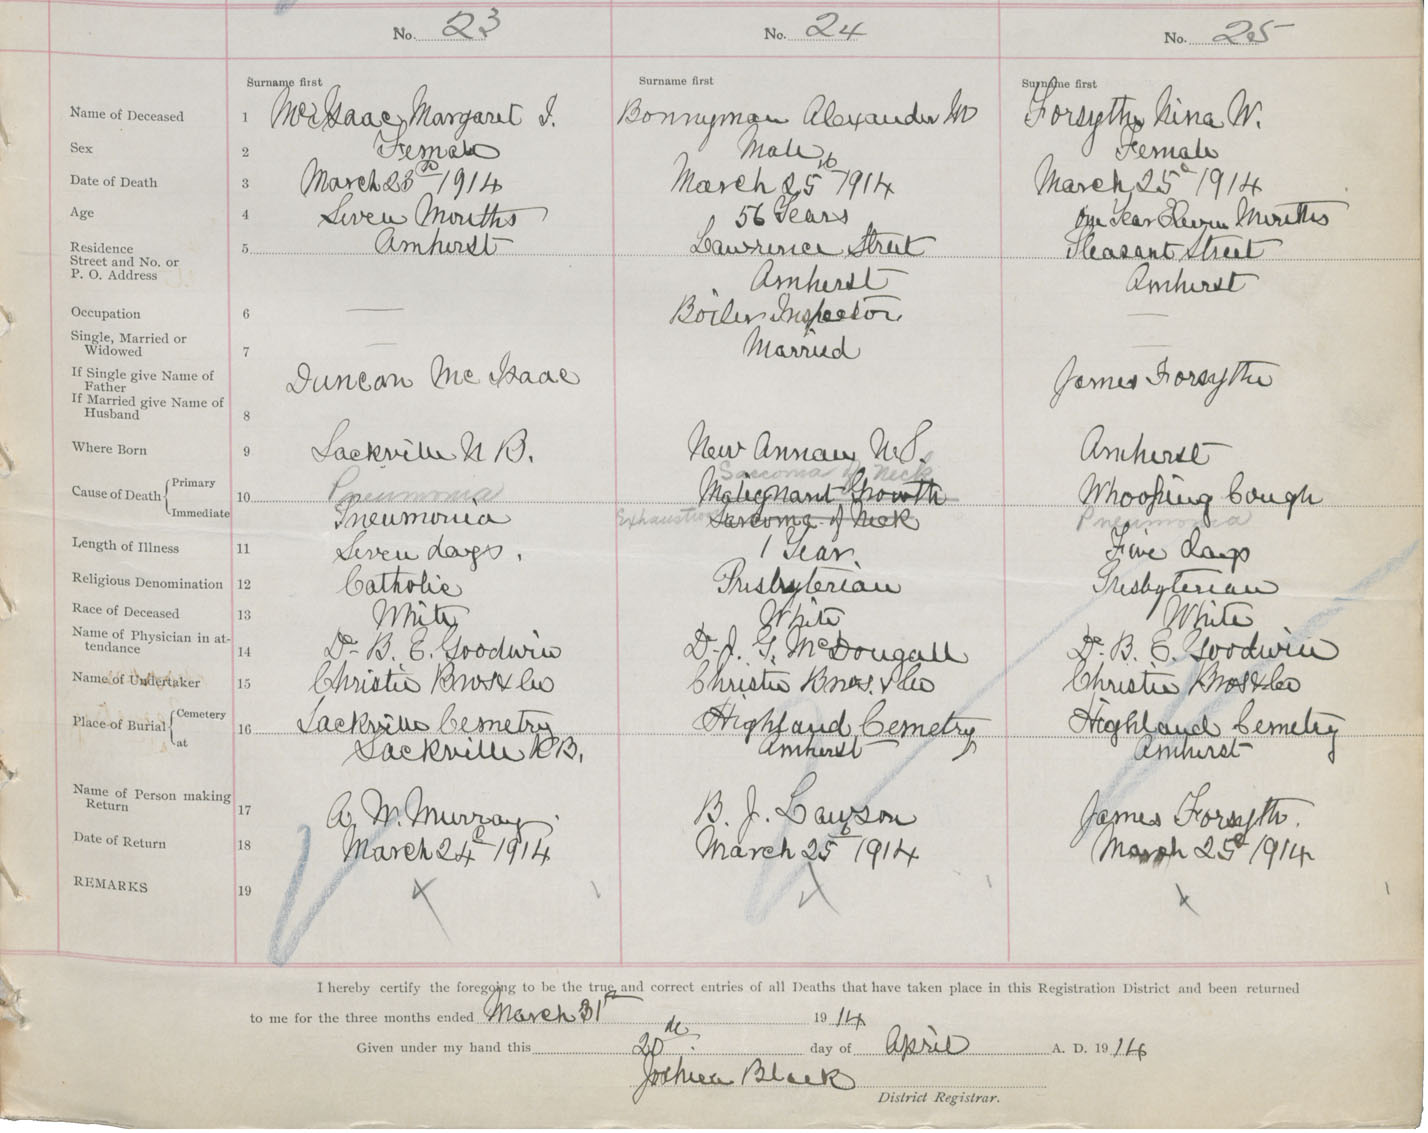 No. 23 No. 24 No. 25
Surname first Surname first Surname first
Name of Deceased 1 McIsaac Margaret J. Bonnyman Alexander M Forsythe Nina W.
Sex 2 Female Male Female
Date of Death 3 March 23rd 1914 March 25th 1914 March 25th 1914
Age 4 Seven Months 56 Years One Year Eleven Months
Residence 5 Amherst Lawrence Street Pleasant Street
Street and No. or
P. O. Address Amherst Amherst
Occupation 6 — Boiler Inspector —
Single, Married or
Widowed 7 — Married —
If Single give Name of
Father Duncan McIsaac James Forsythe
If Married give Name of
Husband 8
Where Born 9 Sackville N B. New Annan N.S. Amherst
Sarcoma of Neck
Cause of Death { Primary 10 Pneumonia Malignant Growth Whooping Cough
Immediate Pneumonia Exhaustion Sarcoma of Neck Pneumonia
Length of Illness 11 Seven days. 1 Year Five days
Religious Denomination 12 Catholic Presbyterian Presbyterian
Race of Deceased 13 White White White
Name of Physician in at-
tendance 14 Dr B. E. Goodwin Dr J. G. McDougall Dr. B. E. Goodwin
Name of Undertaker 15 Christie Bros & Co Christie Bros. & Co Christie Bros & Co
Place of Burial { Cemetery 16 Sackville Cemetry Highland Cemetry Highland Cemetry
at Sackville N.B. Amherst Amherst
Name of Person making
Return 17 A. W. Murray. B. J. Lawson James Forsyth.
Date of Return 18 March 24th 1914 March 25th 1914 March 25th 1914
REMARKS 19 x x x
I hereby certify the foregoing to be the true and correct entries of all Deaths that have taken place in this Registration District and been returned
to me for the three months ended March 31st 1914
Given under my hand this 20th day of April A. D. 1914
Joshua Black
District Registrar.